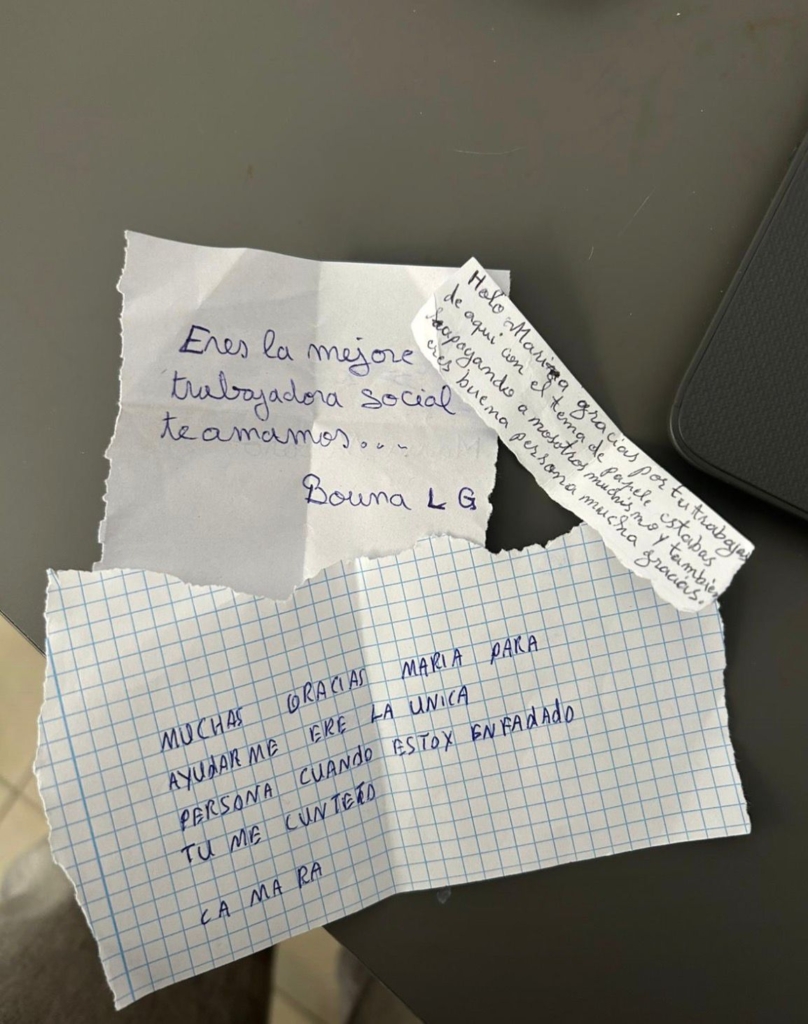 Eres la mejore
trabajadora social
te amamos....
Bouna L G
Hola Marina gracias por tu trabajo
de aqui con el tema de papele estabas
apoyando a nosotros muchismo y tambien
eres buena persona mucha gracias.
MUCHAS GRACIAS MARIA PARA
AYUDARME ERE LA UNICA
PERSONA CUANDO ESTOY ENFADADO
TU ME CUNTETO
CA MA RA